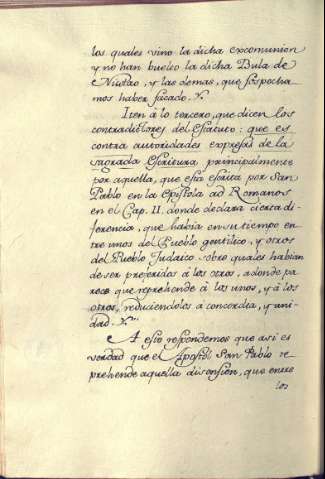 los quales vino la dicha excomunion
y no han buelto la dicha Bula de
Nicolao, y las demas, que sospecha
mos haber sacado.
Iten à lo tercero, que dicen los
contradictores del Estatuto: que es
contra autoridades expresas de la
sagrada Escritura principalmente
por aquella, que esta escrita por San
Pablo en la Epistola ad Romanos
en el Cap. II. donde declara cierta di-
ferencia, que habia en su tiempo en-
tre unos del Pueblo gentilico, y otros
del Pueblo Judaico sobre quales habian
de ser preferidos à los otros, adonde pa
rece que reprehende à los unos, y à los
otros, reduciendolos à concordia, y uni-
dad.
A esto respondemos que asi es
verdad que el Apostol San Pablo re
prehende aquella disension, que entre
los